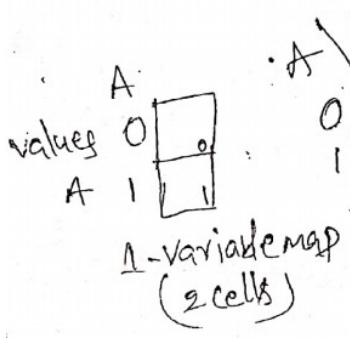 A
A
values 0 0
0
A 1 1
1
1-variable map
(2 cells)